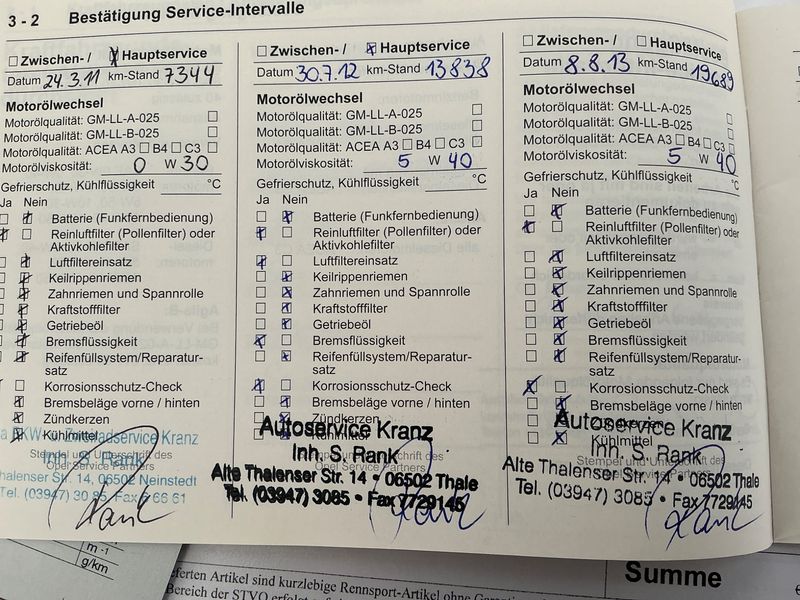 3 - 2 Bestätigung Service-Intervalle
Zwischen- / Hauptservice
Datum 24.3.11 km-Stand 7344
Motorölwechsel
Motorölqualität: GM-LL-A-025
Motorölqualität: GM-LL-B-025
Motorölqualität: ACEA A3 B4 C3
Motorölviskosität: 0 W 30
Gefrierschutz, Kühlflüssigkeit °C
Ja Nein
Batterie (Funkfernbedienung)
Reinluftfilter (Pollenfilter) oder
Aktivkohlefilter
Luftfiltereinsatz
Keilrippenriemen
Zahnriemen und Spannrolle
Kraftstofffilter
Getriebeöl
Bremsflüssigkeit
Reifenfüllsystem/Reparatur-
satz
Korrosionsschutz-Check
Bremsbeläge vorne / hinten
Zündkerzen
Kühlmittel
Zweiradservice Kranz
Inh. S. Rank
Thalenser Str. 14, 06502 Neinstedt
Tel. (03947) 30 85, Fax 6 66 61
Zwischen- / Hauptservice
Datum 30.7.12 km-Stand 13838
Motorölwechsel
Motorölqualität: GM-LL-A-025
Motorölqualität: GM-LL-B-025
Motorölqualität: ACEA A3 B4 C3
Motorölviskosität: 5 W 40
Gefrierschutz, Kühlflüssigkeit °C
Ja Nein
Batterie (Funkfernbedienung)
Reinluftfilter (Pollenfilter) oder
Aktivkohlefilter
Luftfiltereinsatz
Keilrippenriemen
Zahnriemen und Spannrolle
Kraftstofffilter
Getriebeöl
Bremsflüssigkeit
Reifenfüllsystem/Reparatur-
satz
Korrosionsschutz-Check
Bremsbeläge vorne / hinten
Zündkerzen
Autoservice Kranz
Inh. S. Rank
Opel Service Partners
Alte Thalenser Str. 14 • 06502 Thale
Tel. (03947) 3085 • Fax 7729145
Zwischen- / Hauptservice
Datum 8.8.13 km-Stand 19689
Motorölwechsel
Motorölqualität: GM-LL-A-025
Motorölqualität: GM-LL-B-025
Motorölqualität: ACEA A3 B4 C3
Motorölviskosität: 5 W 40
Gefrierschutz, Kühlflüssigkeit °C
Ja Nein
Batterie (Funkfernbedienung)
Reinluftfilter (Pollenfilter) oder
Aktivkohlefilter
Luftfiltereinsatz
Keilrippenriemen
Zahnriemen und Spannrolle
Kraftstofffilter
Getriebeöl
Bremsflüssigkeit
Reifenfüllsystem/Reparatur-
satz
Korrosionsschutz-Check
Bremsbeläge vorne / hinten
Autoservice Kranz
Kühlmittel
Inh. S. Rank
Stempel und Unterschrift des
Alte Thalenser Str. 14 • 06502 Thale
Tel. (03947) 3085 • Fax 7729145
m -1
g/km
eferten Artikel sind kurzlebige Rennsport-Artikel ohne
Bereich der STVO erfolgt
Summe